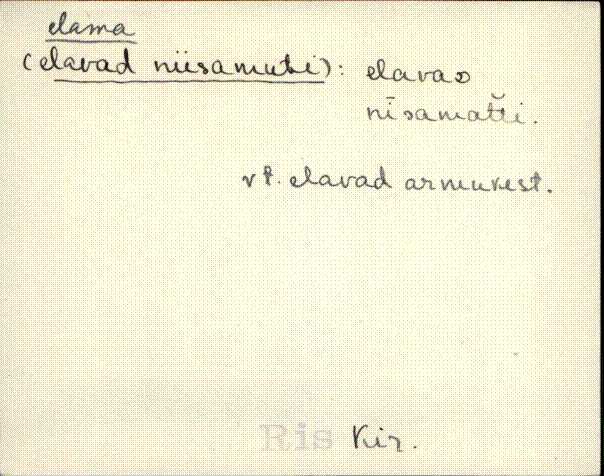 elama
(elavad niisamuti): elavaᴅ
nīsamatti.
vt. elavad armuvest.
Ris Kir.